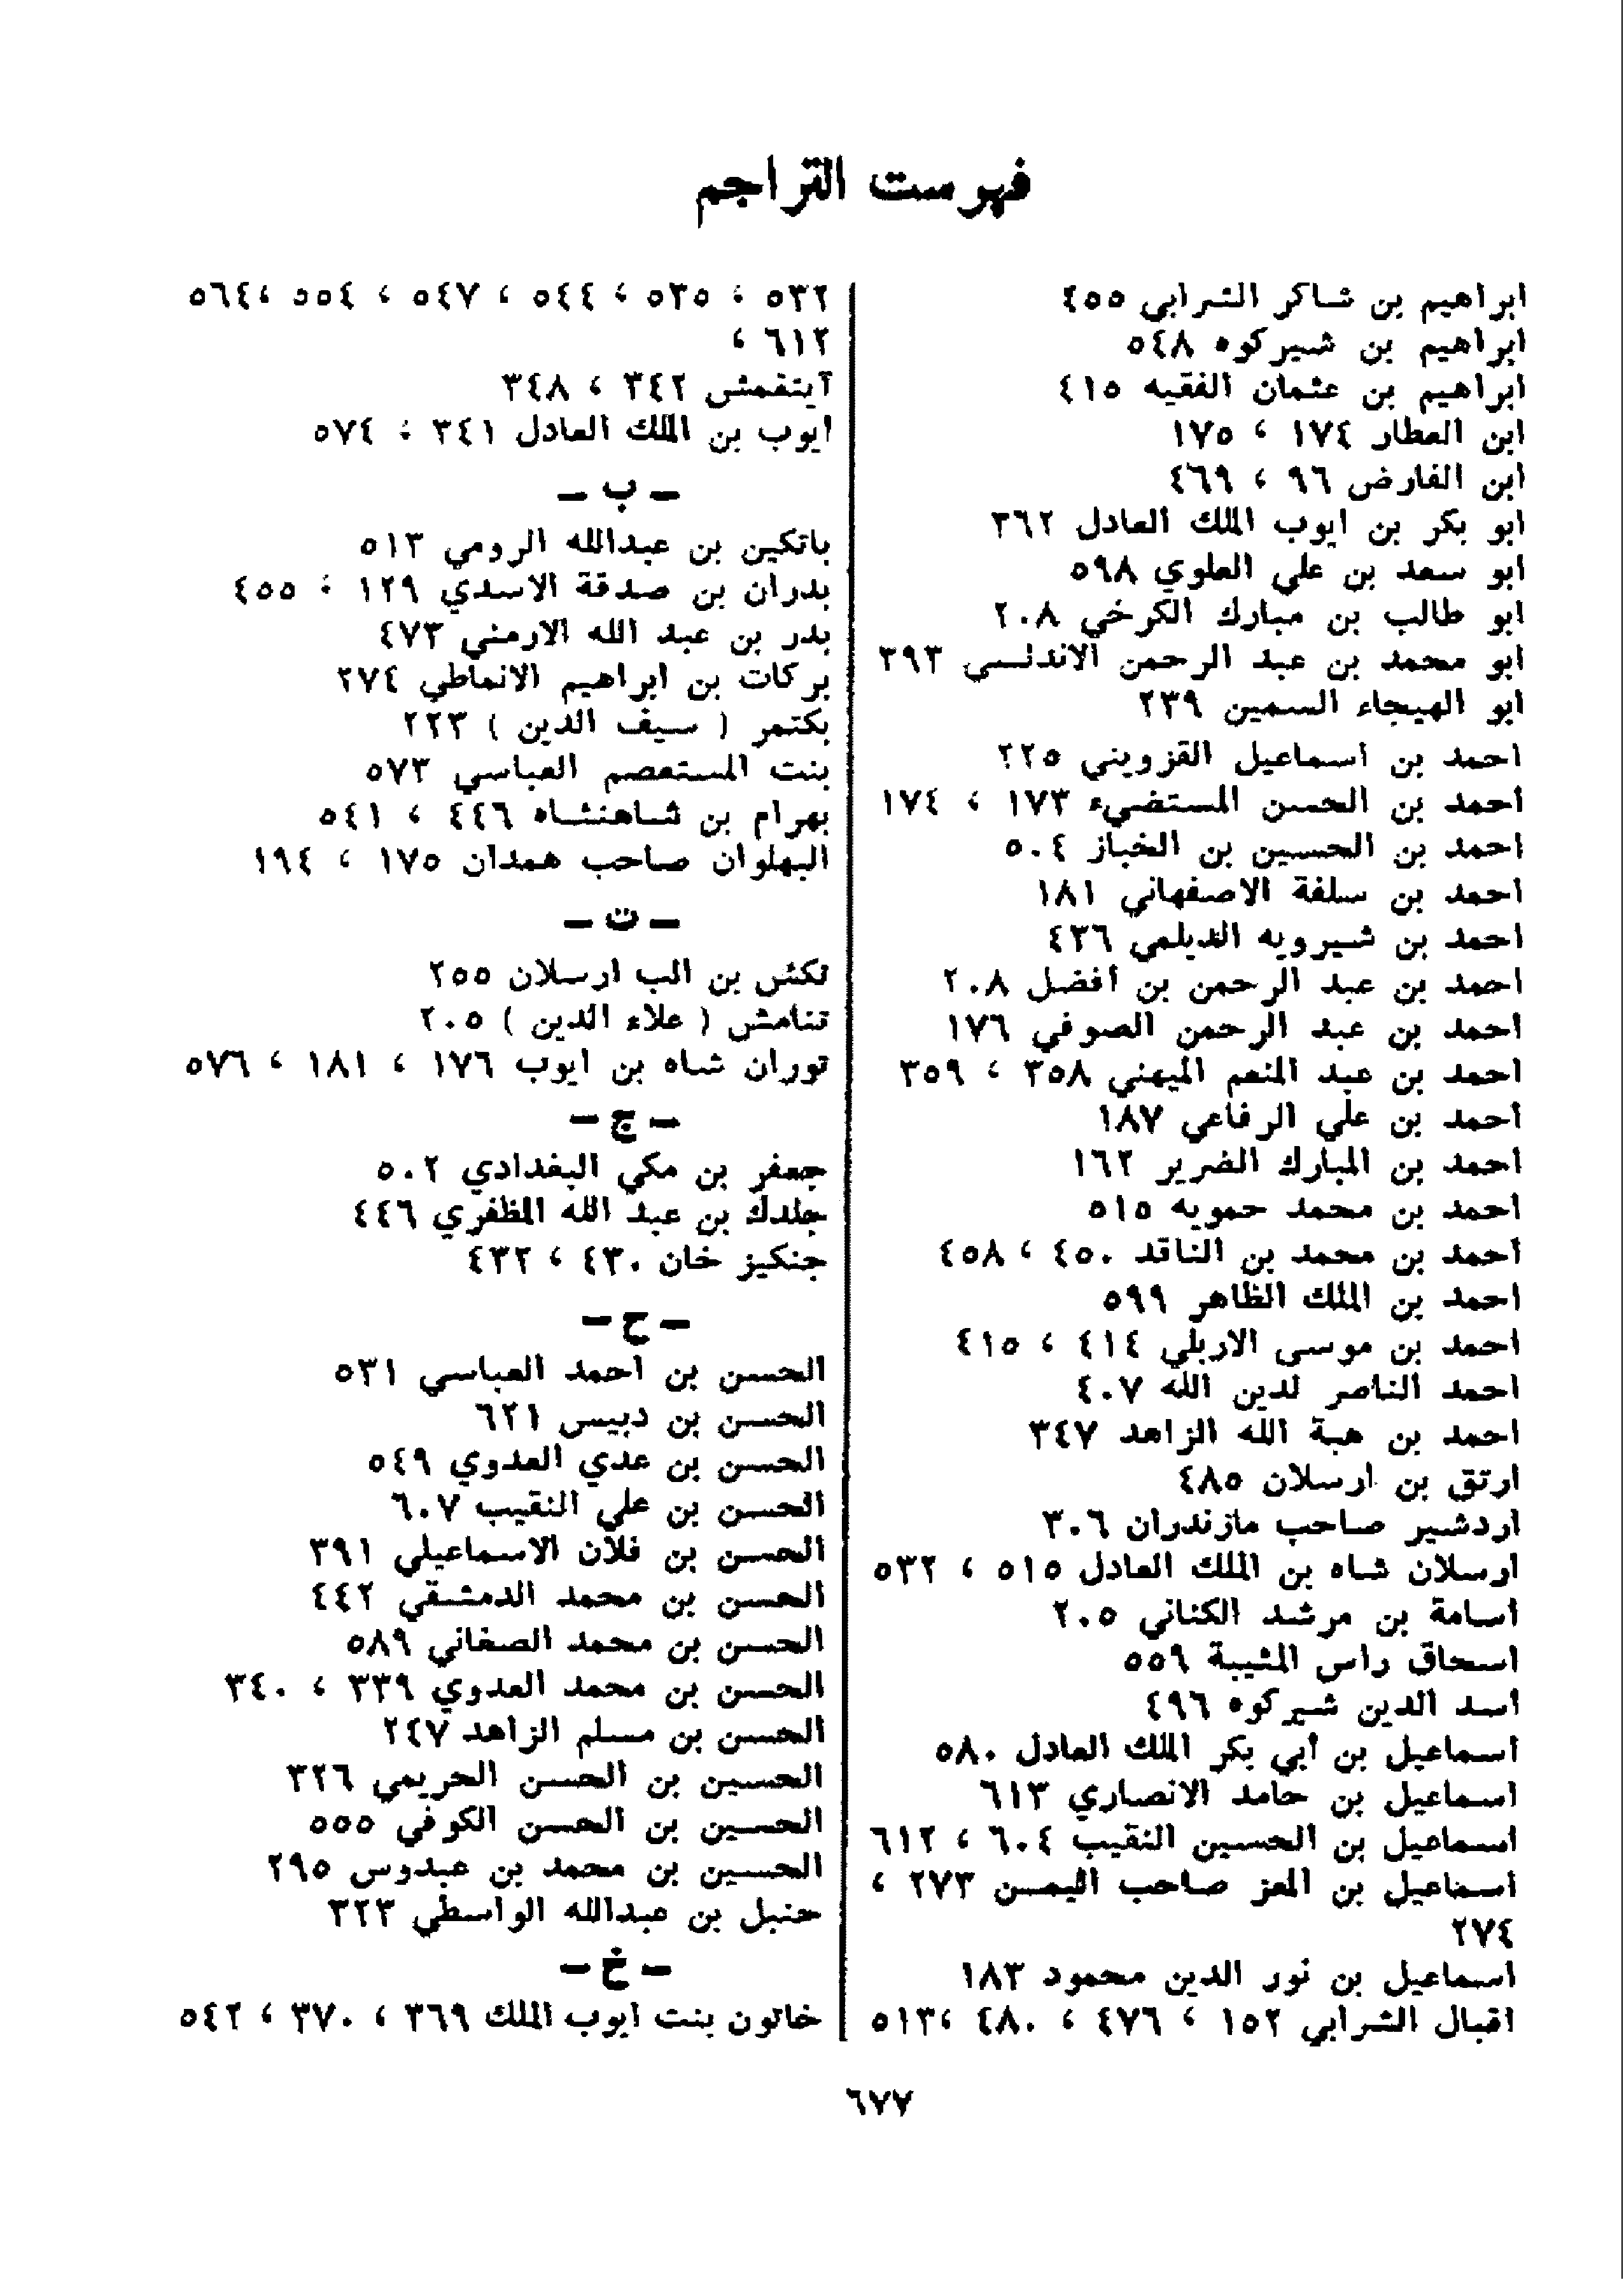 فهرست التراجم
ابراهيم بن شاكر الشرابي ٤٥٥
ابراهيم بن شيركوه ٥٤٨
ابراهيم بن عثمان الفقيه ٤١٥
ابن العطار ١٧٤ ، ١٧٥
ابن الفارض ٩٦ ، ٤٦٩
ابو بكر بن ايوب الملك العادل ٣٦٢
ابو سعد بن علي العلوي ٥٩٨
ابو طالب بن مبارك الكرخي ٢٠٨
ابو محمد بن عبد الرحمن الاندلسي ٣٩٣
ابو الهيجاء السمين ٢٣٩
احمد بن اسماعيل القزويني ٢٢٥
احمد بن الحسن المستضيء ١٧٣ ، ١٧٤
احمد بن الحسين بن الخباز ٥٠٤
احمد بن سلفة الاصفهاني ١٨١
احمد بن شيرويه الديلمي ٤٣٦
احمد بن عبد الرحمن بن أفضل ٢٠٨
احمد بن عبد الرحمن الصوفي ١٧٦
احمد بن عبد المنعم الميهني ٣٥٨ ، ٣٥٩
احمد بن علي الرفاعي ١٨٧
احمد بن المبارك الضرير ١٦٢
احمد بن محمد حمويه ٥١٥
احمد بن محمد بن الناقد ٤٥٠ ، ٤٥٨
احمد بن الملك الظاهر ٥٩٩
احمد بن موسى الاربلي ٤١٤ ، ٤١٥
احمد الناصر لدين الله ٤٠٧
احمد بن هبة الله الزاهد ٣٤٧
ارتق بن ارسلان ٤٨٥
اردشير صاحب مازندران ٣٠٦
ارسلان شاه بن الملك العادل ٥١٥ ، ٥٣٢
اسامة بن مرشد الكناني ٢٠٥
اسحاق راس المثيبة ٥٥٩
أسد الدين شيركوه ٤٩٦
اسماعيل بن أبي بكر الملك العادل ٥٨٠
اسماعيل بن حامد الانصاري ٦١٣
اسماعيل بن الحسين النقيب ٦٠٤ ، ٦١٢
اسماعيل بن المعز صاحب اليمن ٢٧٣ ،
٢٧٤
اسماعيل بن نور الدين محمود ١٨٣
اقبال الشرابي ١٥٢ ، ٤٧٦ ، ٤٨٠ ،٥١٣
٥٣٢ ، ٥٣٥ ، ٥٤٤ ، ٥٤٧ ، ٥٥٤ ،٥٦٤
٦١٢ ،
آيتغمش ٣٤٢ ، ٣٤٨
ايوب بن الملك العادل ٣٤١ ، ٥٧٤
- ب -
باتكين بن عبدالله الرومي ٥١٣
بدران بن صدقة الاسدي ١٢٩ ، ٤٥٥
بدر بن عبد الله الارمني ٤٧٣
بركات بن ابراهيم الانماطي ٢٧٤
بكتمر ( سيف الدين ) ٢٢٣
بنت المستعصم العباسي ٥٧٣
بهرام بن شاهنشاه ٤٤٦ ، ٥٤١
البهلوان صاحب همدان ١٧٥ ، ١٩٤
- ت -
تكش بن الب ارسلان ٢٥٥
تنامش ( علاء الدين ) ٢٠٥
توران شاه بن ايوب ١٧٦ ، ١٨١ ، ٥٧٦
- ج -
جعفر بن مكي البغدادي ٥٠٢
جلدك بن عبد الله المظفري ٤٤٦
جنكيز خان ٤٣٠ ، ٤٣٢
- ح -
الحسن بن احمد العباسي ٥٣١
الحسن بن دبيس ٦٢١
الحسن بن عدي العدوي ٥٤٩
الحسن بن علي النقيب ٦٠٧
الحسن بن فلان الاسماعيلي ٣٩١
الحسن بن محمد الدمشقي ٤٤٢
الحسن بن محمد الصغاني ٥٨٩
الحسن بن محمد العدوي ٣٣٩ ، ٣٤٠
الحسن بن مسلم الزاهد ٢٤٧
الحسين بن الحسن الحريمي ٣٢٦
الحسين بن الحسن الكوفي ٥٥٥
الحسين بن محمد بن عبدوس ٢٩٥
حنبل بن عبدالله الواسطي ٣٢٣
- خ -
خاتون بنت ايوب الملك ٣٦٩ ، ٣٧٠ ، ٥٤٢
٦٧٧